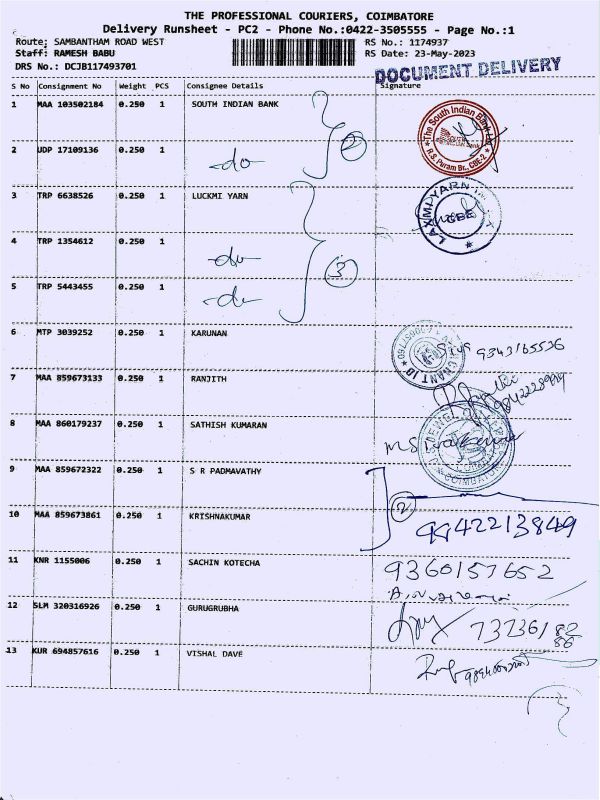 THE PROFESSIONAL COURIERS, COIMBATORE
Delivery Runsheet - PC2 - Phone No.:0422-3505555 - Page No.:1
Route: SAMBANTHAM ROAD WEST RS No.: 1174937
Staff: RAMESH BABU RS Date: 23-May-2023
DRS No.: DCJB117493701 DOCUMENT DELIVERY
S No Consignment No Weight PCS Consignee Details Signature
1 MAA 103502184 0.250 1 SOUTH INDIAN BANK
The South Indian Bank
R.S. Puram Br., CBE-2
2 UDP 17109136 0.250 1 -do- 2
3 TRP 6638526 0.250 1 LUCKMI YARN
LAXMI YARN
4 TRP 1354612 0.250 1 -do- 3
5 TRP 5443455 0.250 1 -do-
6 MTP 3039252 0.250 1 KARUNAN
Siva 9343165536
7 MAA 859673133 0.250 1 RANJITH
8 MAA 860179237 0.250 1 SATHISH KUMARAN
COIMBATORE
9 MAA 859672322 0.250 1 S R PADMAVATHY
2
10 MAA 859673861 0.250 1 KRISHNAKUMAR 9942213849
11 KNR 1155006 0.250 1 SACHIN KOTECHA 9360157652
12 SLM 320316926 0.250 1 GURUGRUBHA 737361
13 KUR 694857616 0.250 1 VISHAL DAVE